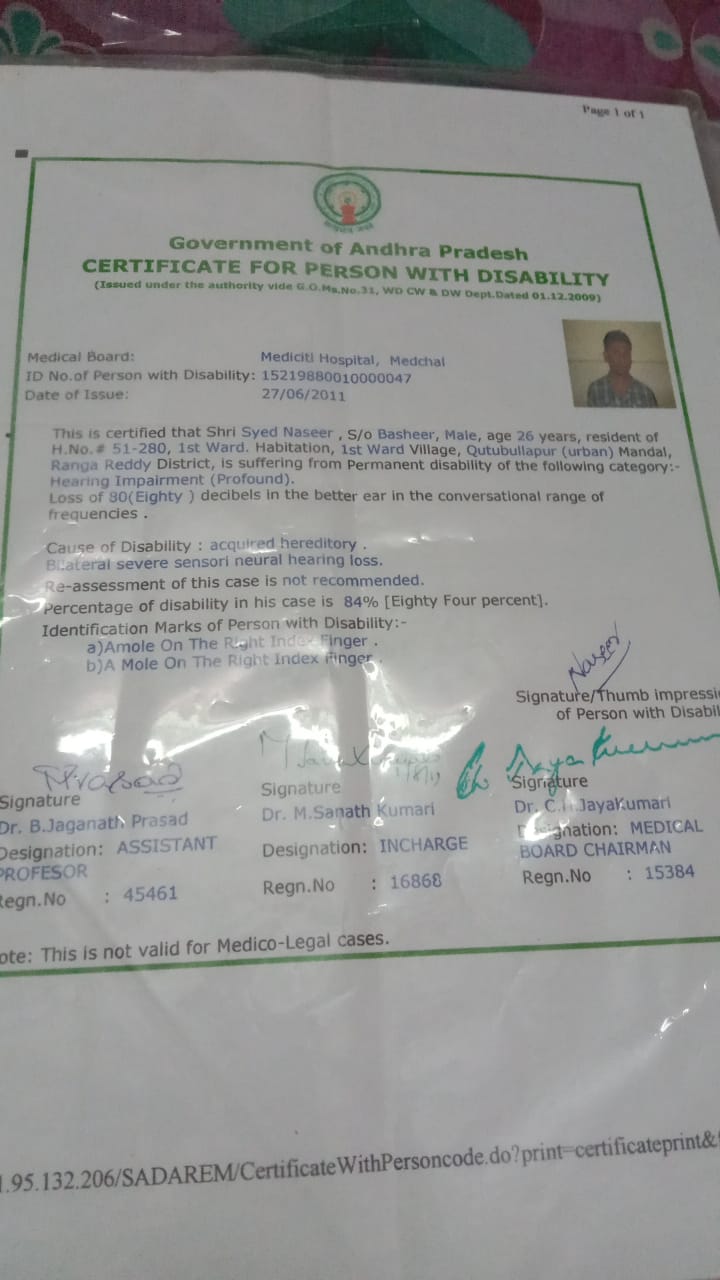 Page 1 of 1
Government of Andhra Pradesh
CERTIFICATE FOR PERSON WITH DISABILITY
(Issued under the authority vide G.O.Ms.No.31, WD CW & DW Dept.Dated 01.12.2009)
Medical Board: Mediciti Hospital, Medchal
ID No.of Person with Disability: 15219880010000047
Date of Issue: 27/06/2011
This is certified that Shri Syed Naseer , S/o Basheer, Male, age 26 years, resident of
H.No.# 51-280, 1st Ward. Habitation, 1st Ward Village, Qutubullapur (urban) Mandal,
Ranga Reddy District, is suffering from Permanent disability of the following category:-
Hearing Impairment (Profound).
Loss of 80(Eighty ) decibels in the better ear in the conversational range of
frequencies .
Cause of Disability : acquired hereditory .
Bilateral severe sensori neural hearing loss.
Re-assessment of this case is not recommended.
Percentage of disability in his case is 84% [Eighty Four percent].
Identification Marks of Person with Disability:-
a)Amole On The Right Index Finger .
b)A Mole On The Right Index Finger .
Naseer
Signature/Thumb impressi
of Person with Disabil
Prasad
Signature Signature Signature
Dr. B.Jaganath Prasad Dr. M.Sanath Kumari Dr. C.H.Jayakumari
Designation: ASSISTANT Designation: INCHARGE Designation: MEDICAL
PROFESOR BOARD CHAIRMAN
Regn.No : 45461 Regn.No : 16868 Regn.No : 15384
ote: This is not valid for Medico-Legal cases.
1.95.132.206/SADAREM/CertificateWithPersoncode.do?print=certificateprint&